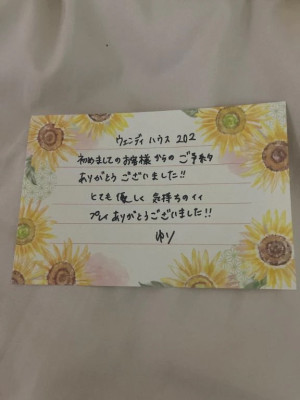 ウェンディハウス 202
初めましてのお客様からのご予約
ありがとうございました!!
とても優しく気持ちのイイ
プレイありがとうございました!!
ゆり